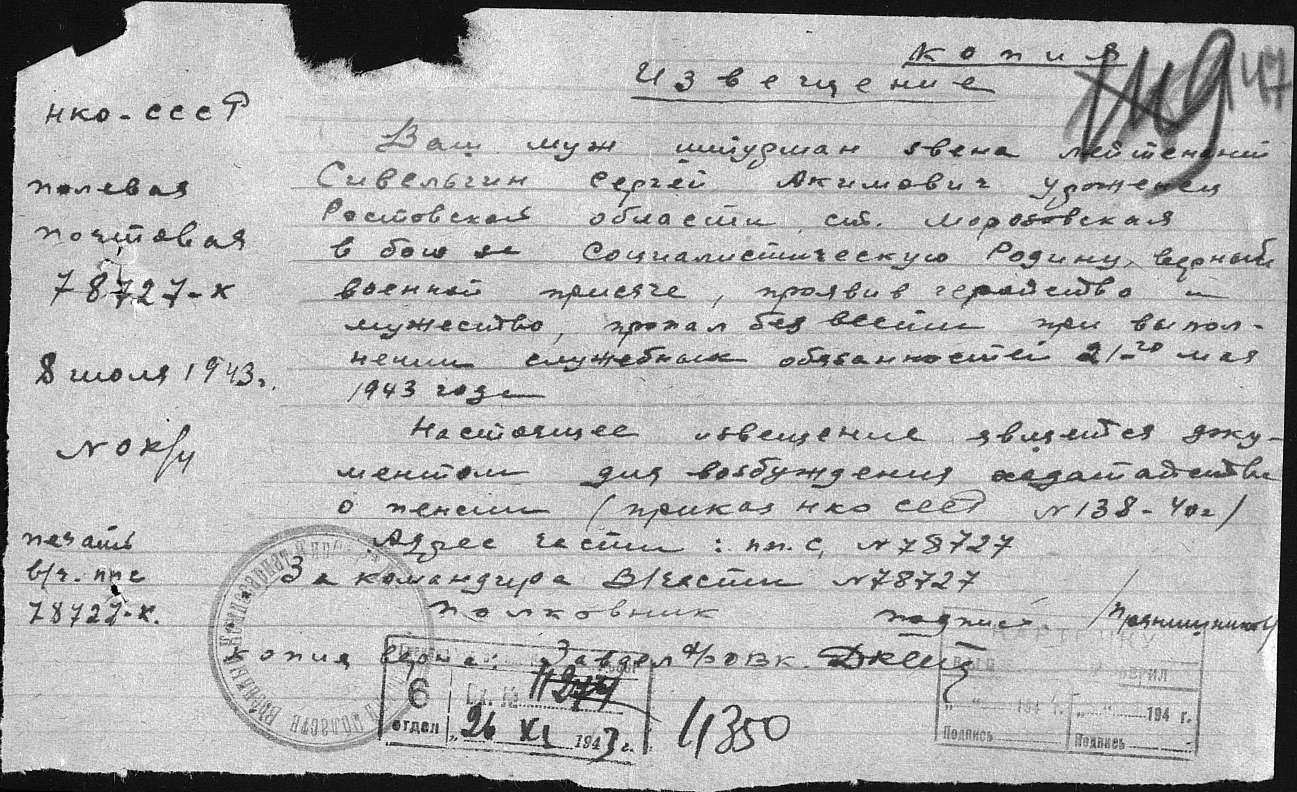 копия
Извещение
47
НКО-СССР
полевая
почтовая
78727-к
8 июля 1943г.
N ОК/4
печать
в/ч. ппс
78727-к.
Ваш муж штурман звена лейтенант
Сивельгин Сергей Акимович уроженец
Ростовской области, ст. Морозовская
в бою за Социалистическую Родину, верный
военной присяге, проявив геройство и
мужество, пропал без вести при выпол-
нении служебных обязанностей 21-го мая
1943 года
Настоящее извещение является доку-
ментом для возбуждения ходатайства
о пенсии (приказ НКО СССР N 138-40г)
Адрес части: п.п.с. N 78727
За командира В/части N 78727
полковник подпись
копия верна: Завдел
6
отдел
Вх. №
"26 XI 1943 г.
11350
194 г.
194 г.
Подпись
Подпись